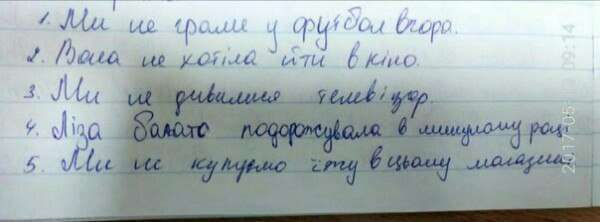 1. Ми не грали у футбол вчора.
2. Вона не хотіла йти в кіно.
3. Ми не дивилися телевізор.
4. Ліза багато подорожувала в минулому році.
5. Ми не купуємо їжу в цьому магазині.